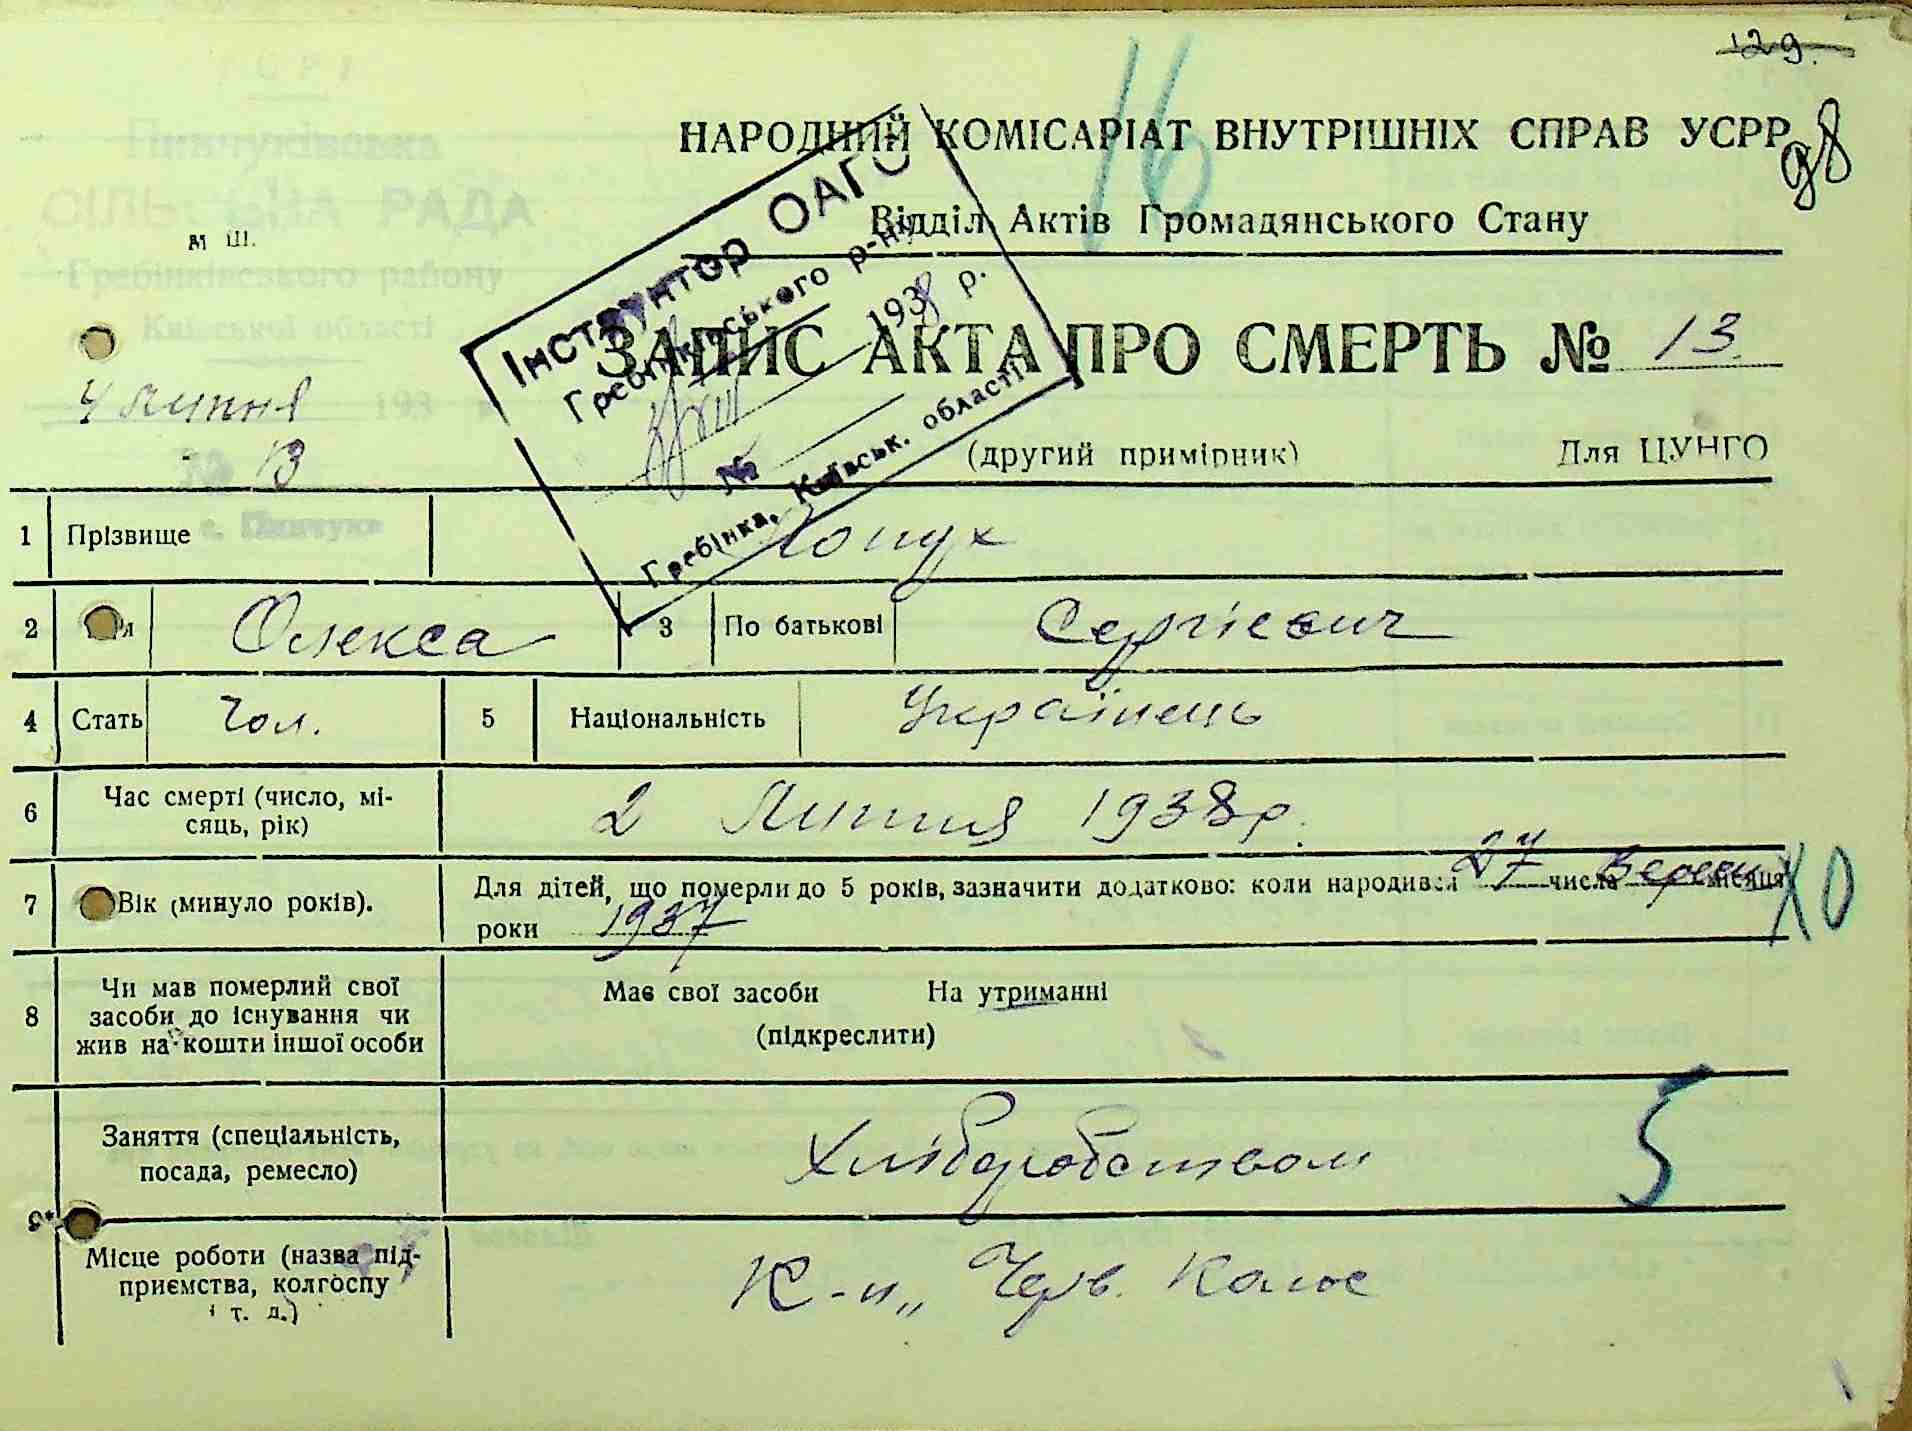 129.
16
НАРОДНИЙ КОМІСАРІАТ ВНУТРІШНІХ СПРАВ УСРР
98
Відділ Актів Громадянського Стану
УСРР
Пинчуківська
СІЛЬСЬКА РАДА
м ш.
Гребінківського району
Київської області
4 липня 193
№ 13
с. Пинчуки
Інструктор ОАГС
Гребінківського р-ну
1938 р.
№
Гребінка, Київськ. області
ЗАПИС АКТА ПРО СМЕРТЬ № 13
(другий примірник) Для ЦУНГО
1 Прізвище Лопух
2 Олекса 3 По батькові Сергієвич
4 Стать Чол. 5 Національність Українець
6 Час смерті (число, мі-
сяць, рік) 2 Липня 1938 р.
7 Вік (минуло років). Для дітей, що померли до 5 років, зазначити додатково: коли народився 27 числа Вересн місяця
роки 1937
ХО
8 Чи мав померлий свої
засоби до існування чи
жив на кошти іншої особи
Має свої засоби На утриманні
(підкреслити)
9* Заняття (спеціальність,
посада, ремесло) Хліборобством
5
Місце роботи (назва під-
приємства, колгоспу
і т. д.) К-п „Черв. Колос